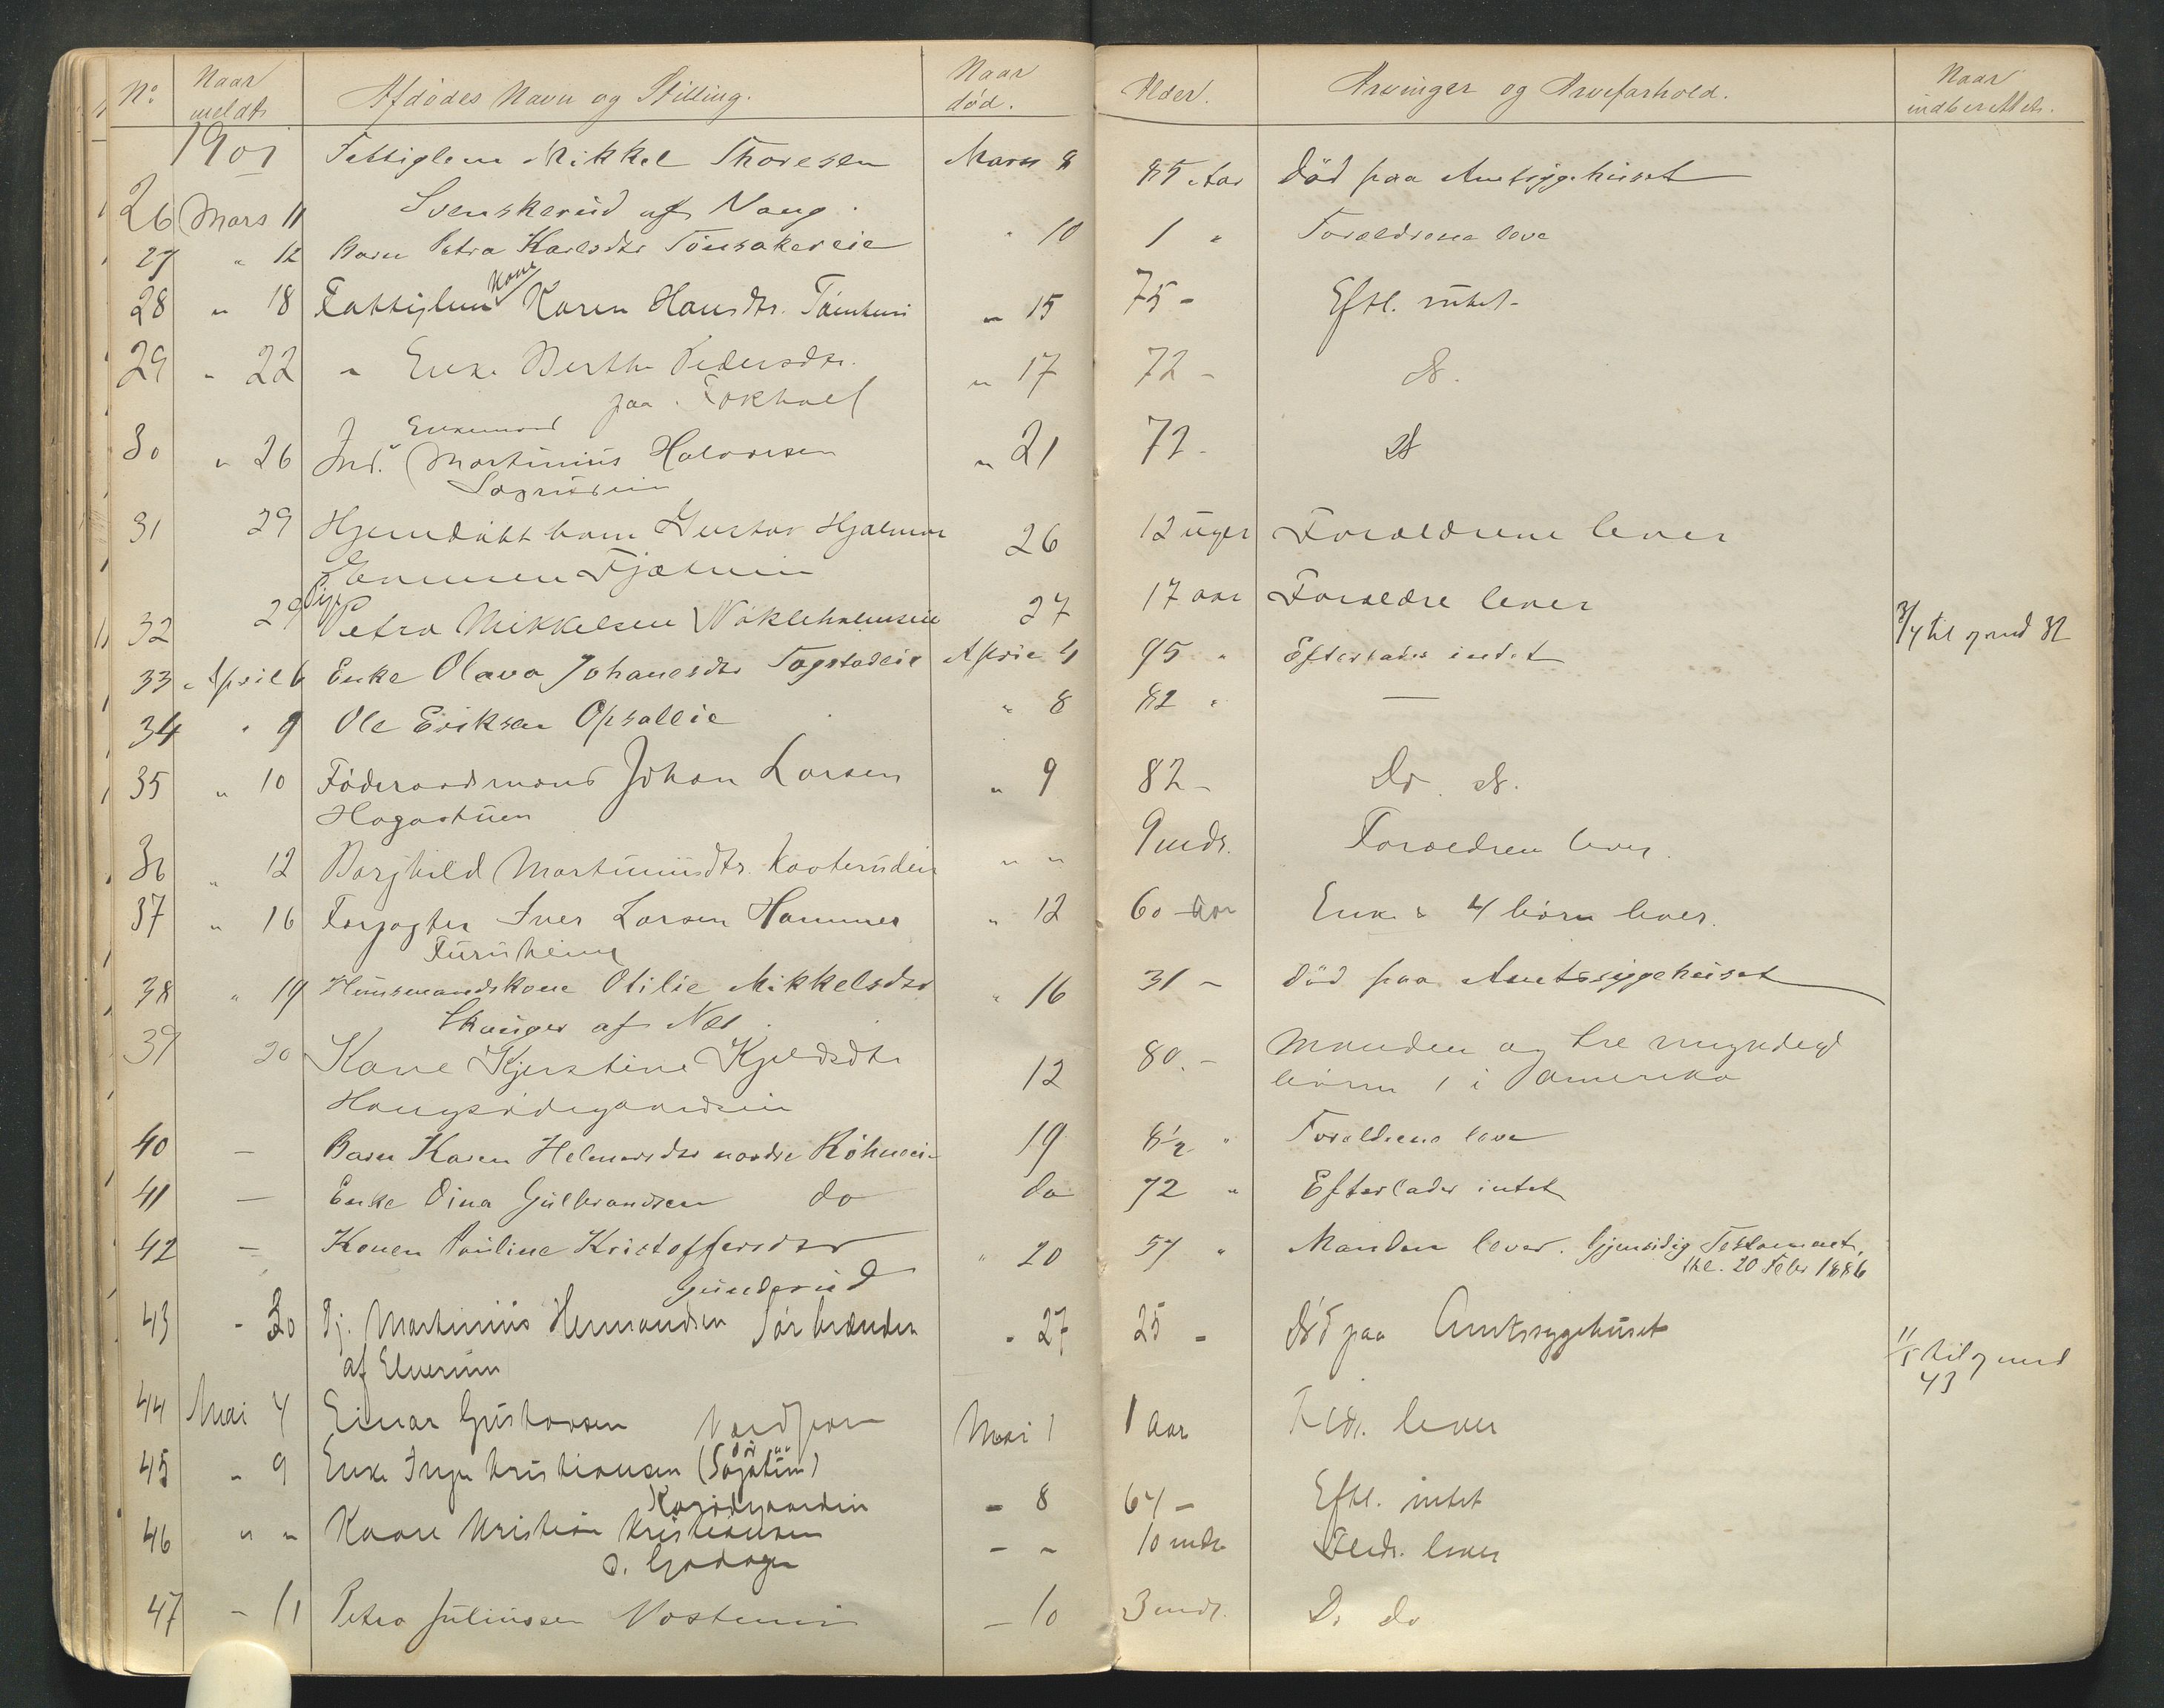 No. Naar meldt. Afdødes Navn og Stilling. Naar død. Alder. Arvinger og Arveforhold. Naar indberettet.
1901 Fattiglem Mikkel Thoresen Mars 8 85 Aar Död paa Amtssygehuset
26 Mars 11 Svenskerud af Vang.
27 " 12 Barn Petra Karlsdtr Tönsakereie " 10 1 " Forældrene leve
28 " 18 Fattiglem Kone Karen Hansdtr. " 15 75 - Eftl. intet -
29 " 22 " Enke Berthe Pedersdtr. " 17 72 - do.
paa
Enkemand
30 " 26 Ind. Martinius Halvorsen " 21 72 - do
31 29 Hjemdöbt barn Gustav Hjalmar 26 12 uger Forældrene lever
Pige
32 29 Petra Mikkelsen 27 17 aar Forældre lever 3/4 til og med 32
33 " April 6 Enke Olava Johanesdtr Togstadeie April 4 95 " Efterlader intet
34 " 9 Ole Eriksen Opsaleie " 8 82 " —
35 " 10 Föderaadsmand Johan Larsen " 9 82 - Do do.
Hagastuen
36 " 12 Borghild Martiniusdtr. " " 9 mdr. Forældren lever.
37 " 16 Forpagter Iver Larsen Hammer " 12 60 Aar Enke & 4 börn lever.
Furuheim
38 " 19 Husmandskone Otilie Mikkelsdtr " 16 31 - Död paa Amtssygehuset
Skauger af Næs
39 20 Kone Kjerstine Kjeldsdtr 12 80. - Manden og tre myndige
börn 1 i Amerika
40 — Barn Karen Helmersdtr nordre 19 8½ " Forældrene leve
41 — Enke Dina Gulbrandsen do do 72 " Efterlader intet
42 — Konen Pauline Kristoffersdtr " 20 57 " Manden lever. Gjensidig Testament,
Gunderud 20 Febr 1886
43 - 30 Pj. Martinius Hermandsen Sörbrænden " 27 25 - död paa Amtssygehuset
af Elverum 11/5 til og med 43
44 Mai 4 Einar Gustavsen Mai 1 1 Aar lever
45 " 9 Enke Inger Kristiansen - 8 64 - Eftl. intet
46 " " Kaare Kristian Kristiansen - " 10 mdr lever
47 - 11 Petra Juliussen - 10 3 mdr. Do do